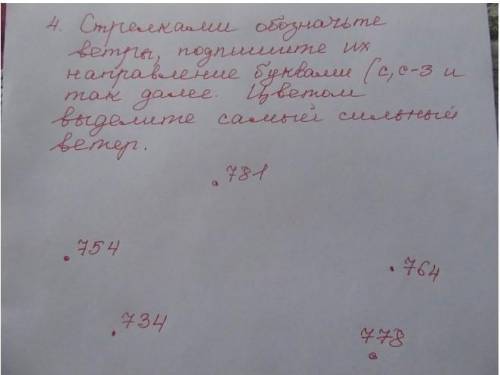 4. Стрелками обозначьте
ветры, подпишите их
направление буквами (с, с-з и
так далее. Цветом
выделите самый сильный
ветер.
781
754
764
734
778